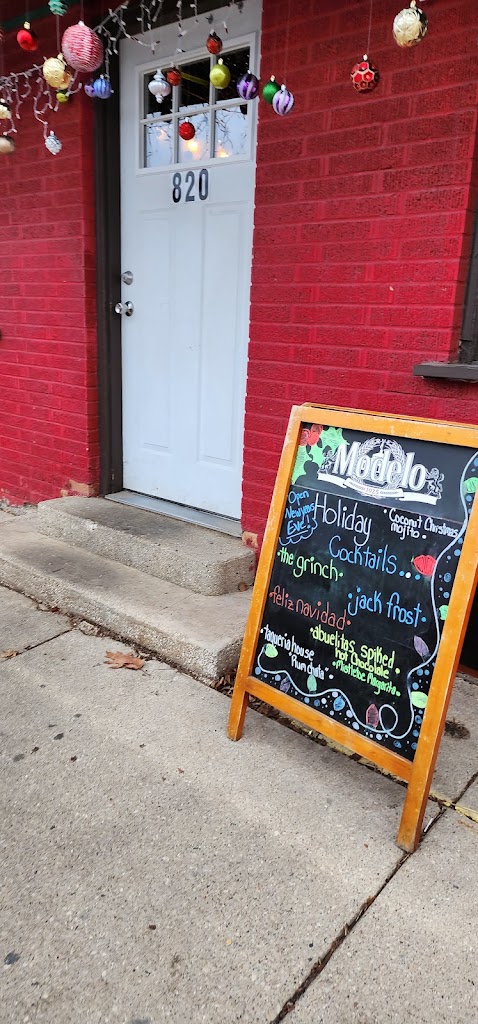 820
Modelo
Open
New years
Eve!
Holiday
Cocktails...
• Coconut Christmas
mojito •
• the grinch •
• jack frost •
• feliz navidad •
• abuelitas spiked
hot chocolate
• taqueria house
Rum chata •
• Mistletoe Margarita •